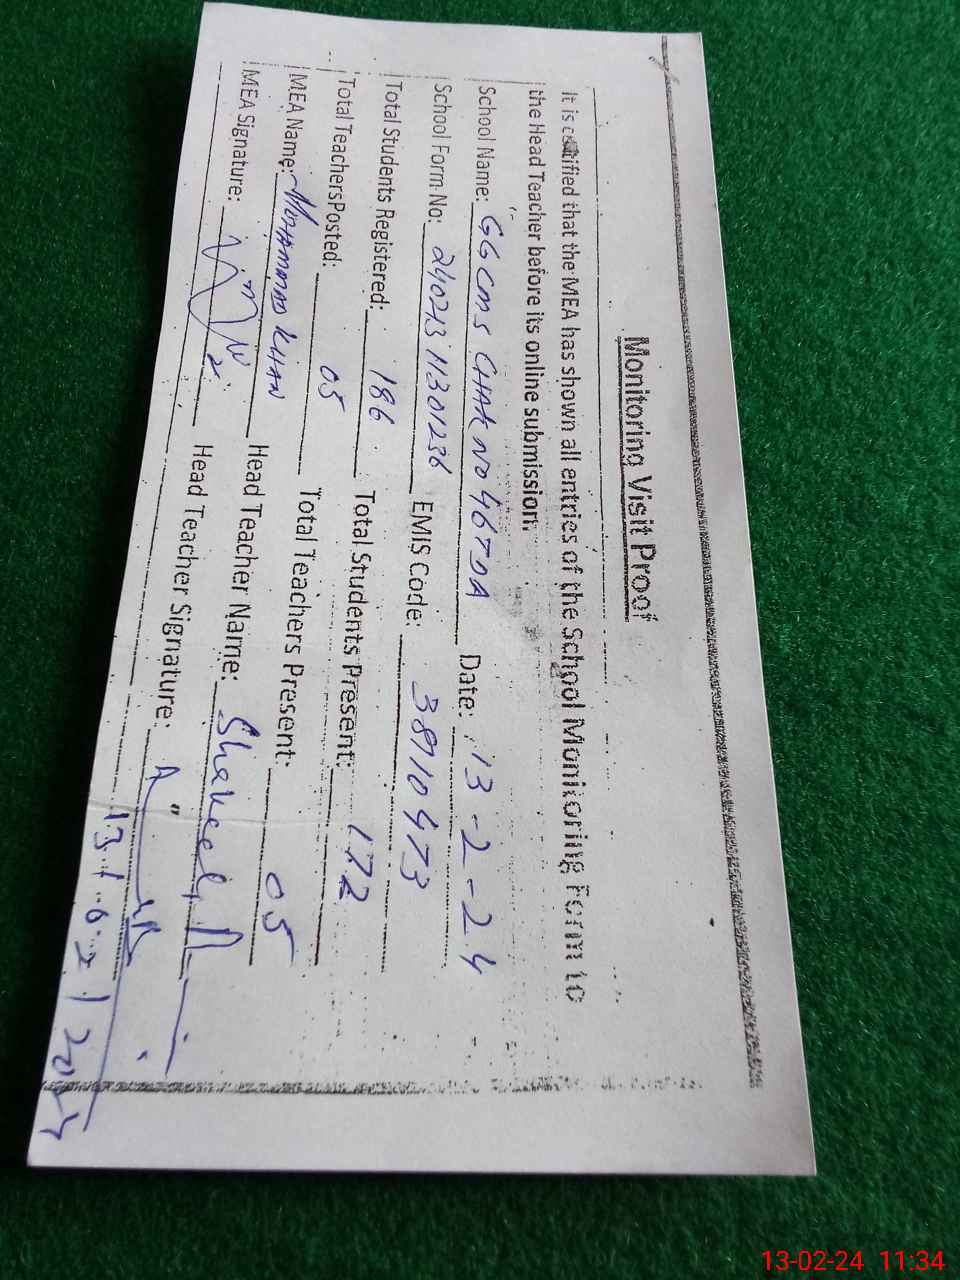 Monitoring Visit Proof
It is certified that the MEA has shown all entries of the School Monitoring Form to
the Head Teacher before its online submission.
School Name: GGCMS CHAK NO 46TDA Date: 13-2-24
School Form No: 24021311301236 EMIS Code: 38710473
Total Students Registered: 186 Total Students Present: 172
Total Teachers Posted: 05 Total Teachers Present: 05
MEA Name: MUHAMMAD KHAN Head Teacher Name: Shakeela
MEA Signature: Head Teacher Signature:
13/02/2024
13-02-24 11:34